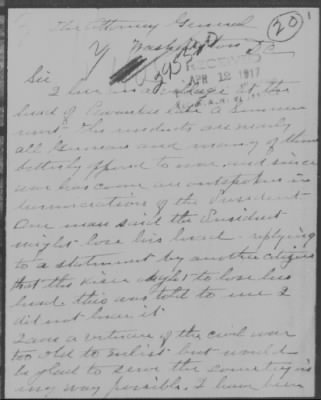 The Attorney General
20
Washington D.C.
RECEIVED
APR 12 1917
Sir
I live in a village at the
head of Pewaukee Lake a summer
resort. The residents are nearly
all Germans and many of them
bitterly opposed to war and since
war has come are outspoken in
denunciation of the President
One man said the President
might lose his head replying
to a statement by another citizen
that the Kiser ought to lose his
head this was told to me I
did not hear it
I am a veteran of the civil war
too old to enlist but would
be glad to serve the country in
any way possible. I have been